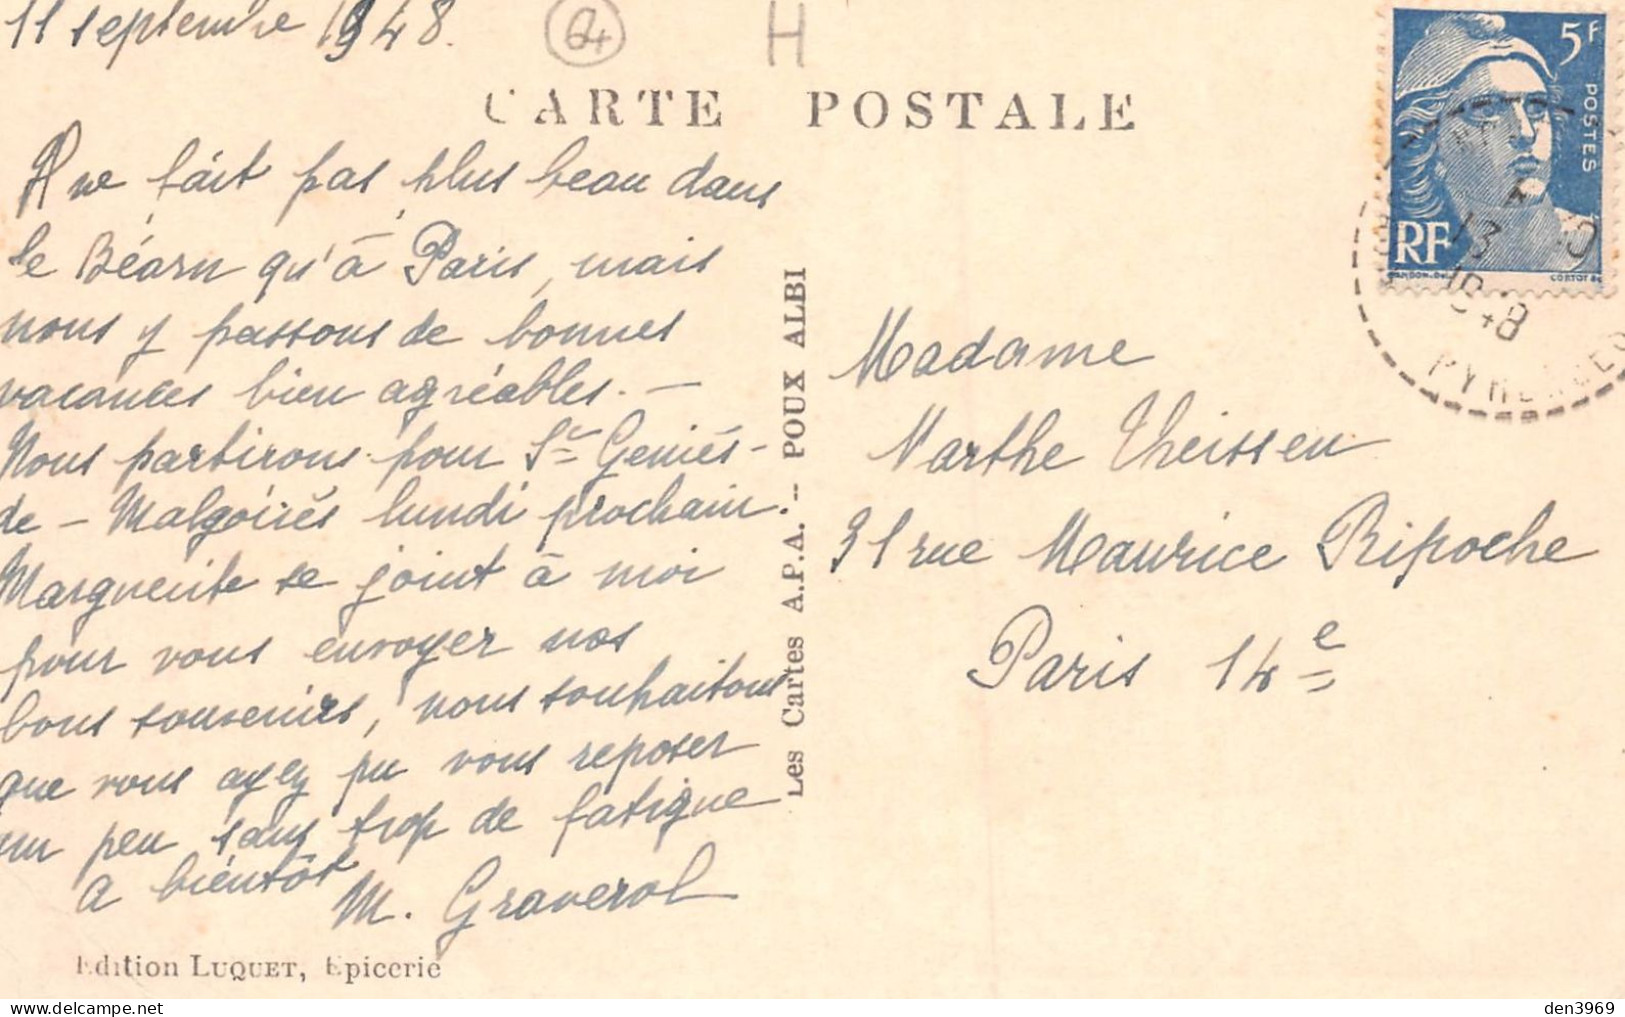 11 septembre 1948.
64
H
CARTE POSTALE
5F
POSTES
RF
13
1948
PYRENEES
Il ne fait pas plus beau dans
le Béarn qu'à Paris, mais
nous y passons de bonnes
vacances bien agréables. —
Nous partirons pour St Geniès-
de-Malgoirés lundi prochain.
Marguerite se joint à moi
pour vous envoyer nos
bons souvenirs, nous souhaitons
que vous ayez pu vous reposer
un peu sans trop de fatigue
a bientôt
M. Graverol
Les Cartes A.P.A. -- POUX ALBI
Madame
Marthe Theissen
31 rue Maurice Ripoche
Paris 14e
Edition LUQUET, Epicerie
den3969